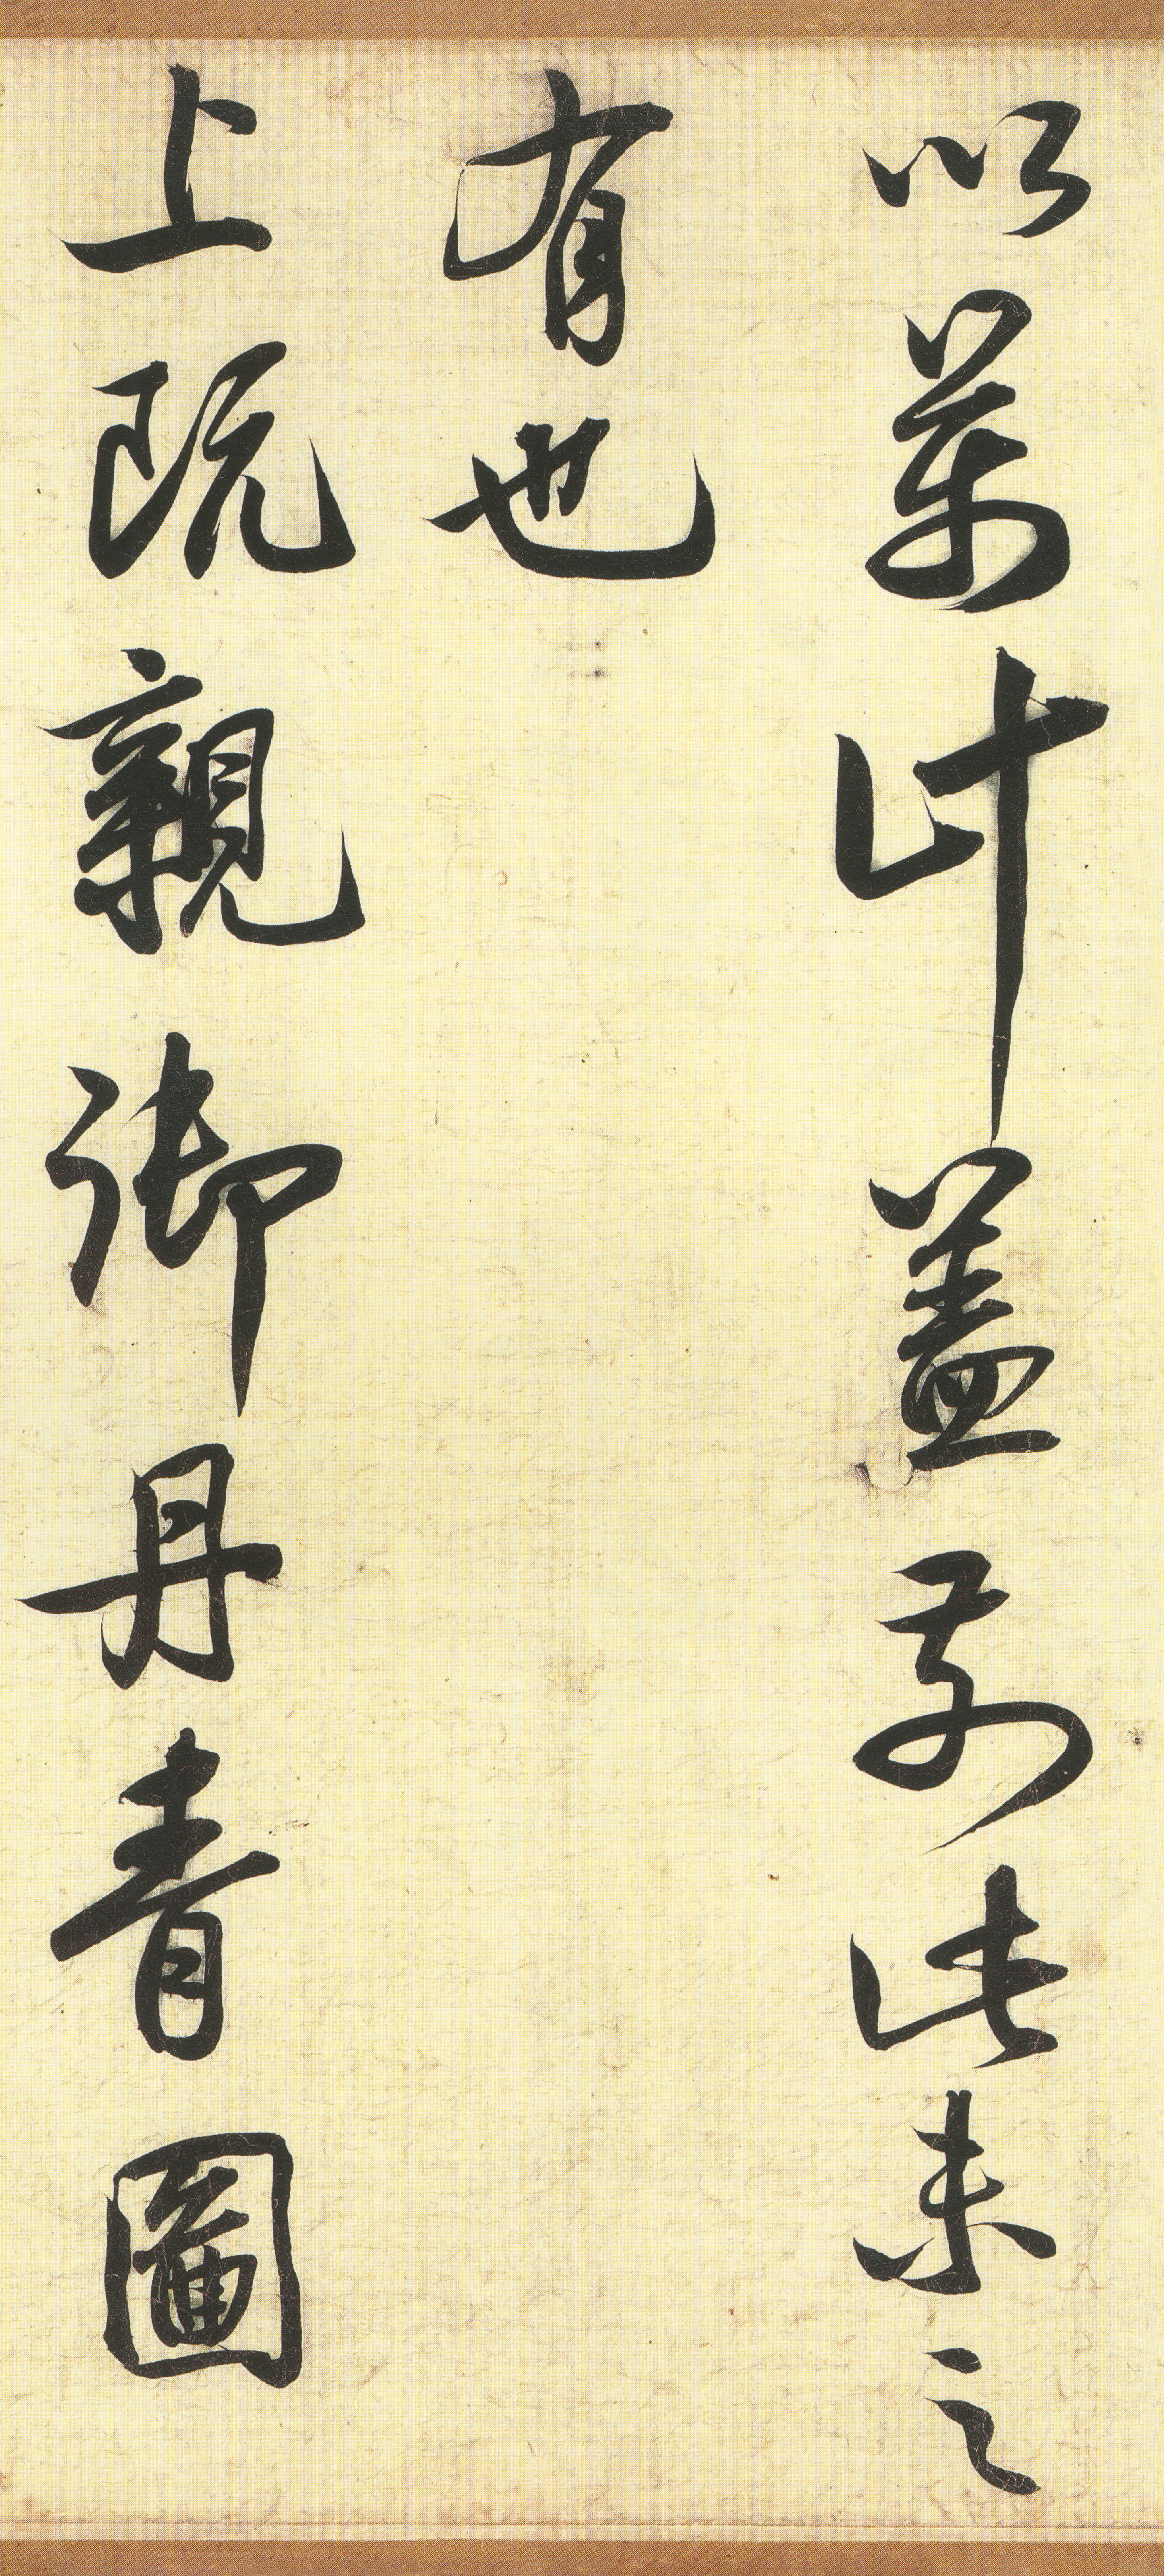 以萬計蓋前此未之
有也
上既親御丹青圖